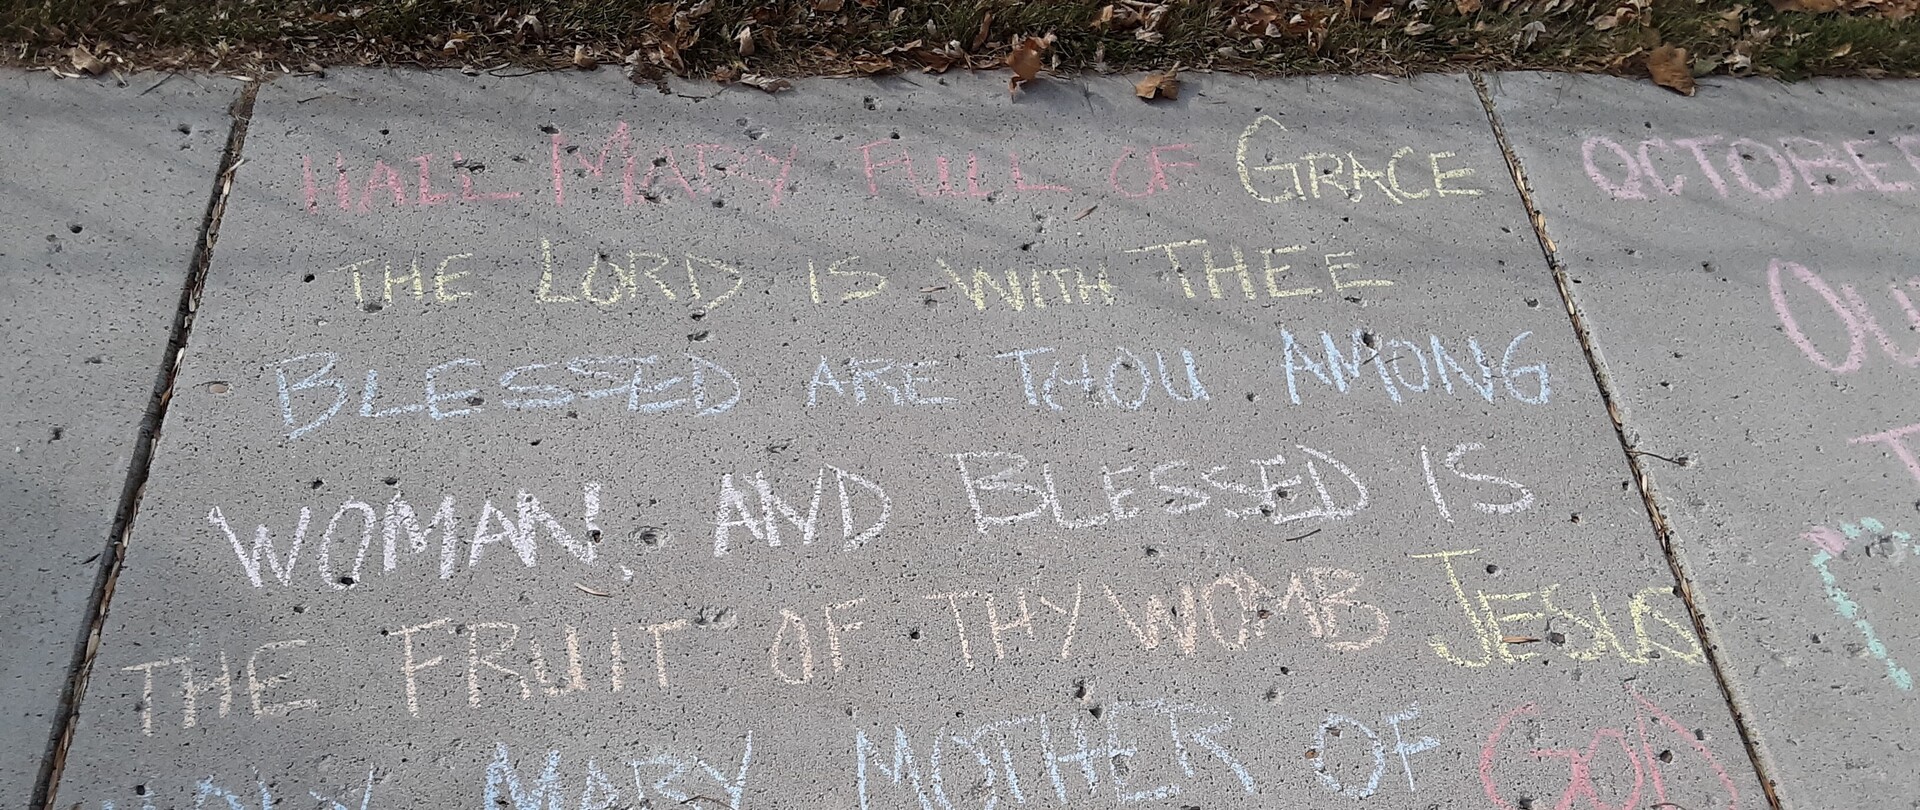 HAIL MARY FULL OF GRACE
THE LORD IS WITH THEE
BLESSED ARE THOU AMONG
WOMAN! AND BLESSED IS
THE FRUIT OF THY WOMB JESUS
HOLY MARY MOTHER OF GOD
OCTOBER
OU